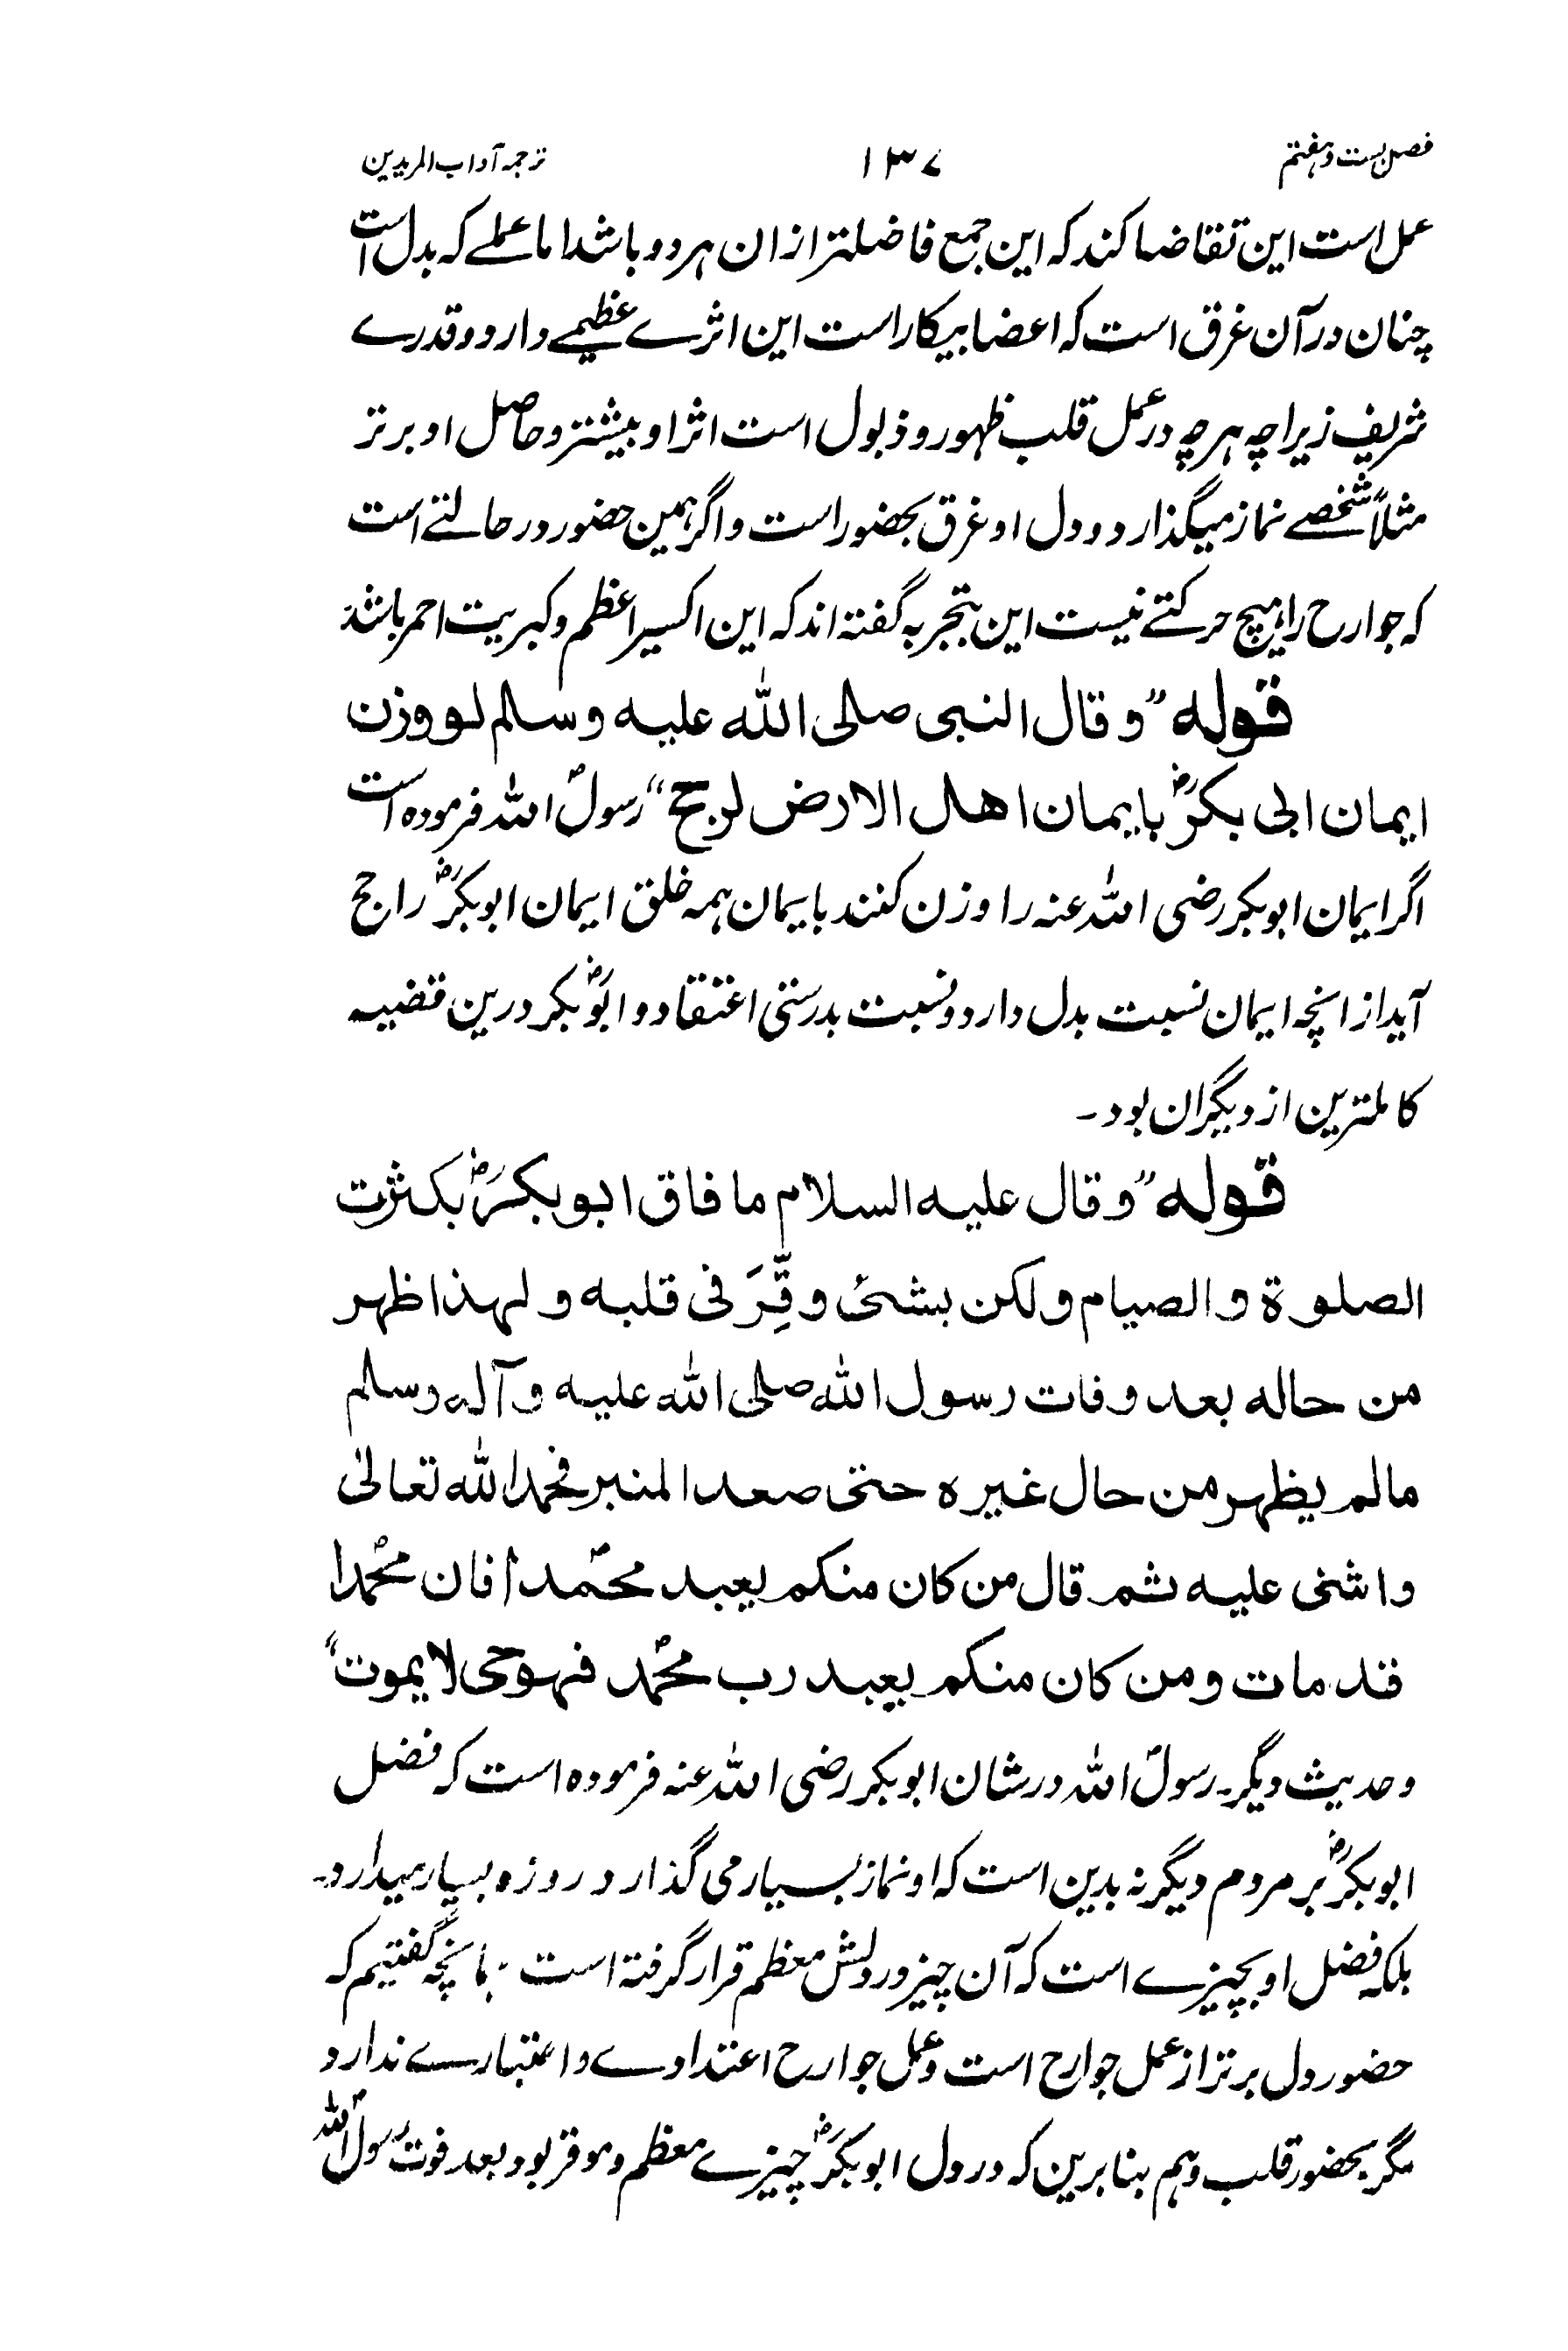 فصل بست و ہفتم ۱۳۷ ترجمہ آداب المریدین
عمل است این تقاضا کند کہ این جمع فاضلتر ازان ہر دو باشد اما عملے کہ بدل است
چنان در آن غرق است کہ اعضا بیکار است این اثرے عظیمے دارد و قدرے
شریف زیراچہ ہر چہ در عمل قلب ظہور و ذبول است اثر او بیشتر و حاصل او برتر
مثلاً شخصے نماز میگذارد و دل او غرق بحضور است و اگر ہمین حضور در حالتے است
کہ جوارح را ہیچ حرکتے نیست این بتجربہ گفتہ اند کہ این اکسیر اعظم و کبریت احمر باشد
قولہ ”و قال النبی صلی اللہ علیہ وسلم لو وزن
ایمان ابی بکرؓ بایمان اھل الارض لرجح“ رسولؐ اللہ فرمودہ است
اگر ایمان ابوبکر رضی اللہ عنہ را وزن کنند بایمان ہمہ خلق ایمان ابوبکرؓ راجح
آید از انچہ ایمان نسبت بدل دارد و نسبت بدرستی اعتقاد و ابوؓبکر درین قضیہ
کاملترین از دیگران بود ۔
قولہ ”و قال علیہ السلام ما فاق ابوبکرؓ بکثرت
الصلوۃ و الصیام ولکن بشئ وقِّرَ فی قلبہ و لہذا ظہر
من حالہ بعد وفات رسول اللہ صلی اللہ علیہ وآلہ وسلم
مالم یظہر من حال غیرہ حتی صعد المنبر فحمد اللہ تعالیٰ
واثنی علیہ ثم قال من کان منکم یعبد محمدؐاً فان محمدؐا
قد مات ومن کان منکم یعبد رب محمدؐ فہو حی لا یموت“
و حدیث دیگر۔ رسولؐ اللہ در شان ابوبکر رضی اللہ عنہ فرمودہ است کہ فضل
ابوبکرؓ بر مردم دیگر نہ بدین است کہ او نماز بسیار می گذارد روزہ بسیار میدارد۔
بلکہ فضل او بچیزے است کہ آن چیز در دلش معظم قرار گرفتہ است ۔ بانچہ گفتیم کہ
حضور دل برتر از عمل جوارح است و عمل جوارح اعتدادے و اعتبارے ندارد
مگر بحضور قلب و ہم بنابرین کہ در دل ابوبکرؓ چیزے معظم و موقر بود بعد فوت رسولؐ اللہ